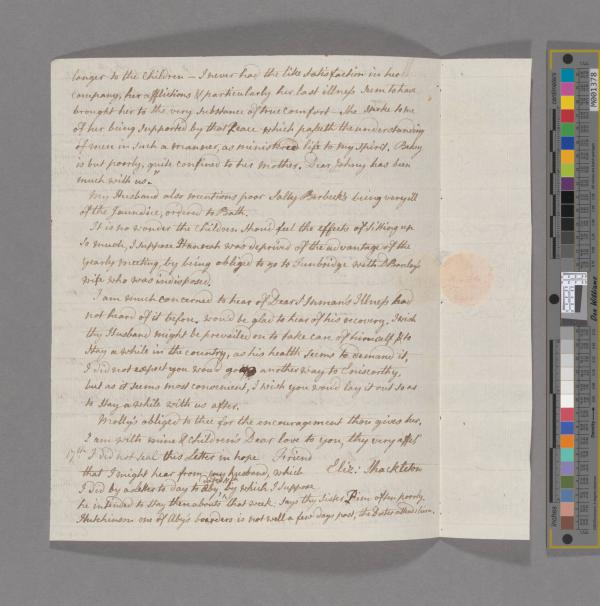 longer to the Children — I never had the like satisfaction in her
company, her afflictions & particularly her last illness seem to have
brought her to the very substance of true comfort — she spoke to me
of her being supported by that Peace which passeth the understanding
of men in such a manner, as ministered life to my spirit.
is but poorly, quite confined to his mother. Dear Johnny has been
much with us."
My Husband also mentions poor Sally Beck's being very ill
of the Jaundice, ordered to Bath.
It is no wonder the Children shoud feel the effects of sitting up
so much, I suppose Hannah was deprived of the advantage of the
yearly meeting, by being obliged to go to Tunbridge with
wife who was indisposed.
I am much concerned to hear of Dear J Inman's Illness had
not heard of it before, would be glad to hear of his recovery. I wish
thy Husband might be prevailed on to take care of himself & to
stay a while in the country, as his health seems to demand it,
I did not expect you woud go another way to Eniscorthy,
but as it seems most convenient, I wish you would lay it out so as
to stay a while with us after.
Molly's obliged to thee for the encouragement thou gives her,
I am with mine & Children's Dear love to you, thy very affect
17th I did not seal this Letter in hope Friend
that I might hear from my husband, which Eliz: Shackleton
I did by a letter to day to Aby, by which I suppose
he intended to stay thereabouts that week. says thy Sister Pim often poorly.
Hutchinson one of Aby's boarders is not well a few days past, the Doctor attends him.
centimeters
inches
M001378
Don Williams